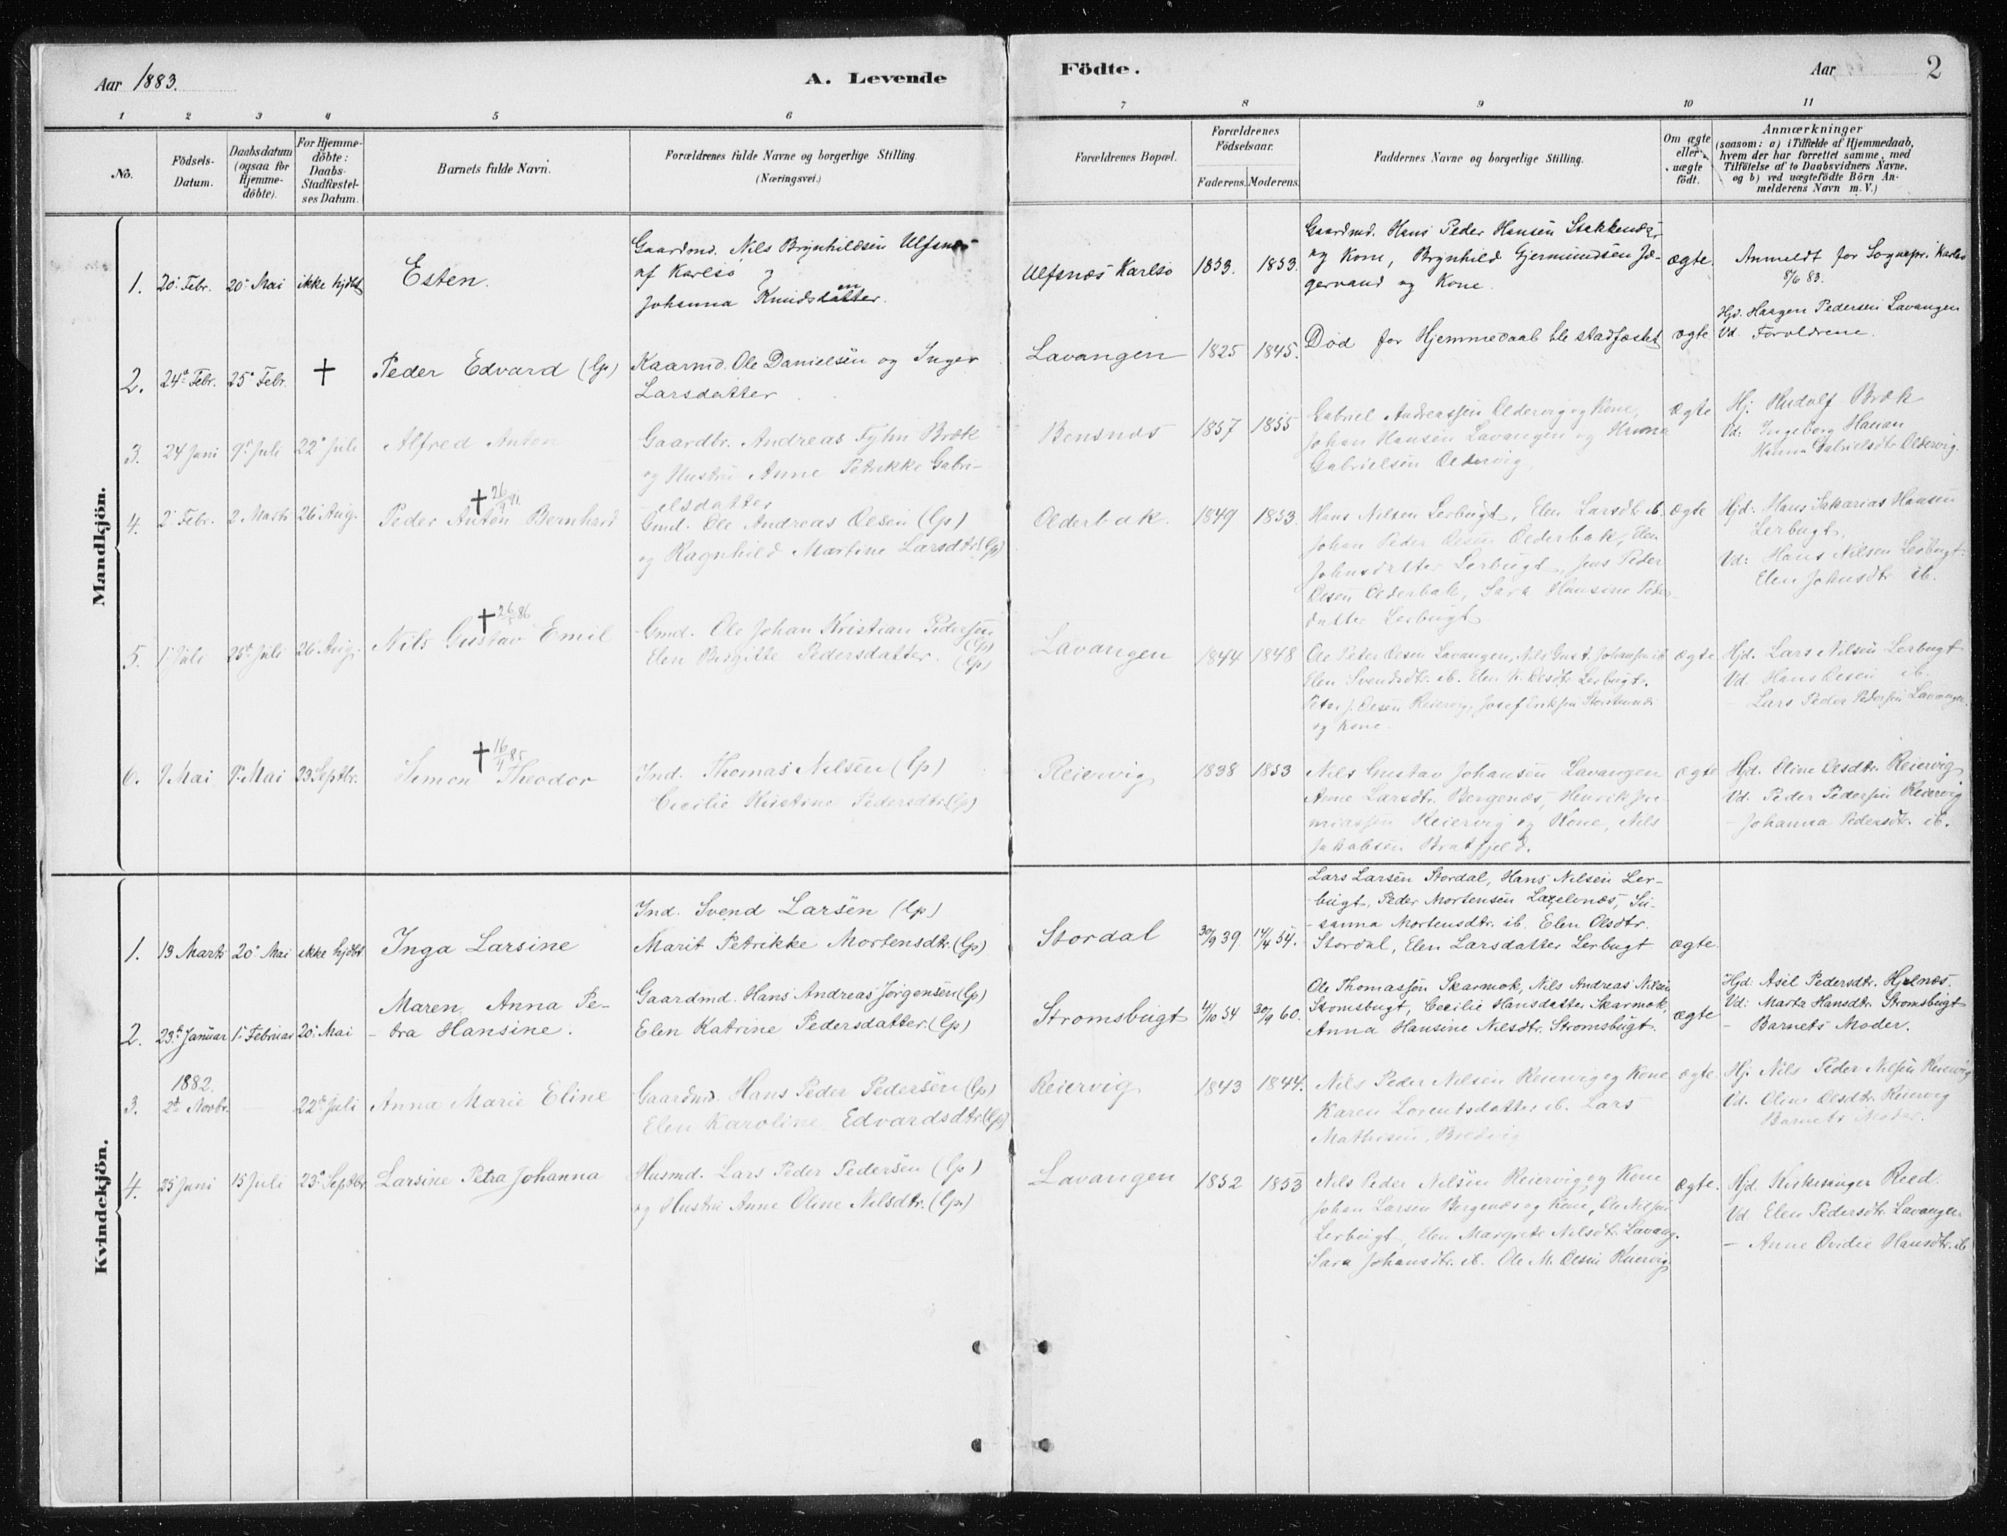 Aar 1883.
A. Levende
Födte.
Aar
2
1 2 3 4 5 6 7 8 9 10 11
No.
Födsels-
Datum.
Daabsdatum
(ogsaa för
Hjemme-
döbte).
For Hjemme-
döbte:
Daabs-
Stadfæstel-
ses Datum.
Barnets fulde Navn.
Forældrenes fulde Navne og borgerlige Stilling.
(Næringsvei.)
Forældrenes Bopæl.
Forældrenes
Födselsaar.
Faderens. Moderens.
Faddernes Navne og borgerlige Stilling.
Om ægte
eller
uægte
födt.
Anmærkninger
(saasom: a) i Tilfælde af Hjemmedaab,
hvem der har forrettet samme, med
Tilföielse af to Daabsvidners Navne,
og b) ved uægtefödte Börn An-
melderens Navn m. V.)
Mandkjön.
1. 20' Febr. 20' Mai ikke hjdbt
Esten.
Gaardmd. Nils Brynhildsen Ulfsnes
af Karlsö
Johanna Knudsdatter.
Ulfsnæs Karlsö 1853. 1853.
Gaardmd. Hans Peder Hansen Stakkenæs
og Kone, Brynhild Gjermundsen Jæ-
gervand og Kone.
ægte.
Anmeldt for Sognepr. i Karlsö
8/6 83.
2. 24' Febr. 25' Febr. †
Peder Edvard (lp)
Kaarmd. Ole Danielsen og Inger
Larsdatter
Lavangen 1825 1845.
Död för Hjemmedaab ble stadfæstet
ægte
Hjd. Haagen Pedersen Lavangen
Vd. Forældrene.
3. 24 Juni 9' Juli 22' Juli
Alfred Anton
Gaardbr. Andreas Fyhn Bræk
og Hustru Anne Petrikke Gabri-
elsdatter
Bensnæs 1857 1855
Gabriel Andreassen Oldervig og Kone,
Johan Hansen Lavangen og Hanna
Gabrielsen Oldervig
ægte
Hj: Rudolf Bræk
Vd: Ingeborg Hanan
Hanna Gabrielsdtr Oldervig.
4. 2' Febr. 2 Marts 26' Aug.
† 26 91
Peder Anton Bernhard
Gmd. Ole Andreas Olsen (lp)
og Ragnhild Martine Larsdtr. (lp)
Olderbak. 1849 1853.
Hans Nilsen Lerbugt, Elen Larsdtr. ib.
Johan Peder Olsen Olderbak, Elen
Johnsdatter Lerbugt, Jens Peder
Olsen Olderbak, Sara Hansine Peder-
datter Lerbugt
ægte
Hjd: Hans Sakarias Hansen
Lerbugt.
Vd: Hans Nilsen Lerbugt.
Elen Johnsdtr. ib.
5. 1' Juli 26' Juli 26' Aug.
† 26 86
Nils Gustav Emil
Gmd. Ole Johan Kristian Pedersen (lp)
Elen Birgitte Pedersdatter. (lp)
Lavangen 1844 1848
Ole Peter Olsen Lavangen, Nils Gust. Johansen ib
Elen Svendsdtr. ib. Elen N. Olsdtr Lerbugt.
Peter J. Olsen Reiervig, Josef Eriksen
og Kone.
ægte
Hjd. Lars Nilsen Lerbugt
Vd. Hans Olsen ib.
- Lars Peder Pedersen Lavangen.
6. 9 Mai 9' Mai 23 Septbr.
† 16/4 85
Simon Theodor
Ind. Thomas Nilsen (lp)
Cecilie Kristine Pedersdtr. (lp)
Reiervig 1838 1853
Nils Gustav Johansen Lavangen
Anne Larsdtr. Bergenæs, Henrik Jere-
miassen Reiervig og Kone, Nils
Jakobsen Bratfjeld.
ægte
Hjd. Oline Olsdtr. Reiervig
Vd. Peder Pedersen Reiervig
- Johanna Pedersdtr. ib.
Kvindekjön.
1. 19 Marts 20' Mai ikke hjdbt
Inga Larsine
Ind. Svend Larsen (lp)
Marit Petrikke Mortensdtr. (lp)
Stordal 30/9 39 14/4 54.
Lars Larsen Stordal, Hans Nilsen Ler-
bugt, Peder Mortensen Laxelenæs, Su-
sanna Mortensdtr ib. Elen Olsdtr.
Stordal, Elen Larsdatter Lerbugt
ægte
2. 23' Januar 1' Februar 20' Mai
Maren Anna Pe-
tra Hansine.
Gaardmd. Hans Andreas Jörgensen (lp)
Elen Katrine Pedersdatter. (lp)
Strömsbugt 4/10 54 30/9 60.
Ole Thomassen Skarmok, Nils Andreas Nilsen
Strömsbugt, Cecilie Hansdatter Skarmok,
Anna Hansine Nilsdtr. Strömsbugt.
ægte
Hjd: Asil Pedersdtr. Hjelnæs.
Vd: Marta Hansdtr. Strömsbugt
- Barnets Moder.
3. 1882. 2' Novbr. 22' Juli
Anna Marie Eline
Gaardmd. Hans Peder Pedersen (lp)
Elen Karoline Edvardsdtr. (lp)
Reiervig 1843 1844.
Nils Peder Nilsen Reiervig og Kone
Karen Lorentsdatter ib. Lars
Mathisen Bredvig
ægte
Hj. Nils Peder Nilsen Reiervig
Vd. Oline Olsdtr. Reiervig
Barnets Moder.
4. 25' Juni 15 Juli 23' Septbr
Larsine Petra Johanna
Husmd. Lars Peder Pedersen (lp)
og Hustru Anne Oline Nilsdtr. (lp.)
Lavangen 1852 1853
Nils Peder Nilsen Reiervig og Kone
Johan Larsen Bergenæs og Kone, Ole Nilsen
Lerbugt, Elen Margrete Nilsdtr. Lavang.
Sara Johansdtr. ib. Ole M. Olsen Reiervig
ægte.
Hjd. Kirkesanger Reed.
Vd Elen Pedersdtr. Lavangen
- Anne Ovidie Hansdtr. ib